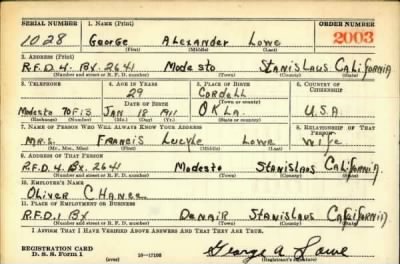 SERIAL NUMBER 1. NAME (Print) ORDER NUMBER
1028 George Alexander Lowe 2003
(First) (Middle) (Last)
2. ADDRESS (Print)
R.F.D. 4. Bx. 2641 Modesto Stanislaus California
(Number and street or R. F. D. number) (Town) (County) (State)
3. TELEPHONE 4. AGE IN YEARS 5. PLACE OF BIRTH 6. COUNTRY OF CITIZENSHIP
29 Cordell
DATE OF BIRTH (Town or county)
Modesto 70F13 Jan 18 1911 Okla. U.S.A
(Exchange) (Number) (Mo.) (Day) (Yr.) (State or country)
7. NAME OF PERSON WHO WILL ALWAYS KNOW YOUR ADDRESS 8. RELATIONSHIP OF THAT PERSON
Mrs. Francis Lowe wife
(Mr., Mrs., Miss) (First) (Middle) (Last)
9. ADDRESS OF THAT PERSON
R.F.D. 4. Bx. 2641 Modesto Stanislaus California
(Number and street or R. F. D. number) (Town) (County) (State)
10. EMPLOYER'S NAME
Oliver
11. PLACE OF EMPLOYMENT OR BUSINESS
R.F.D. 1 Bx Denair Stanislaus California
(Number and street or R. F. D. number) (Town) (County) (State)
I AFFIRM THAT I HAVE VERIFIED ABOVE ANSWERS AND THAT THEY ARE TRUE.
REGISTRATION CARD
D. S. S. Form 1 (over) 16—17105 George A Lowe
(Registrant's signature)